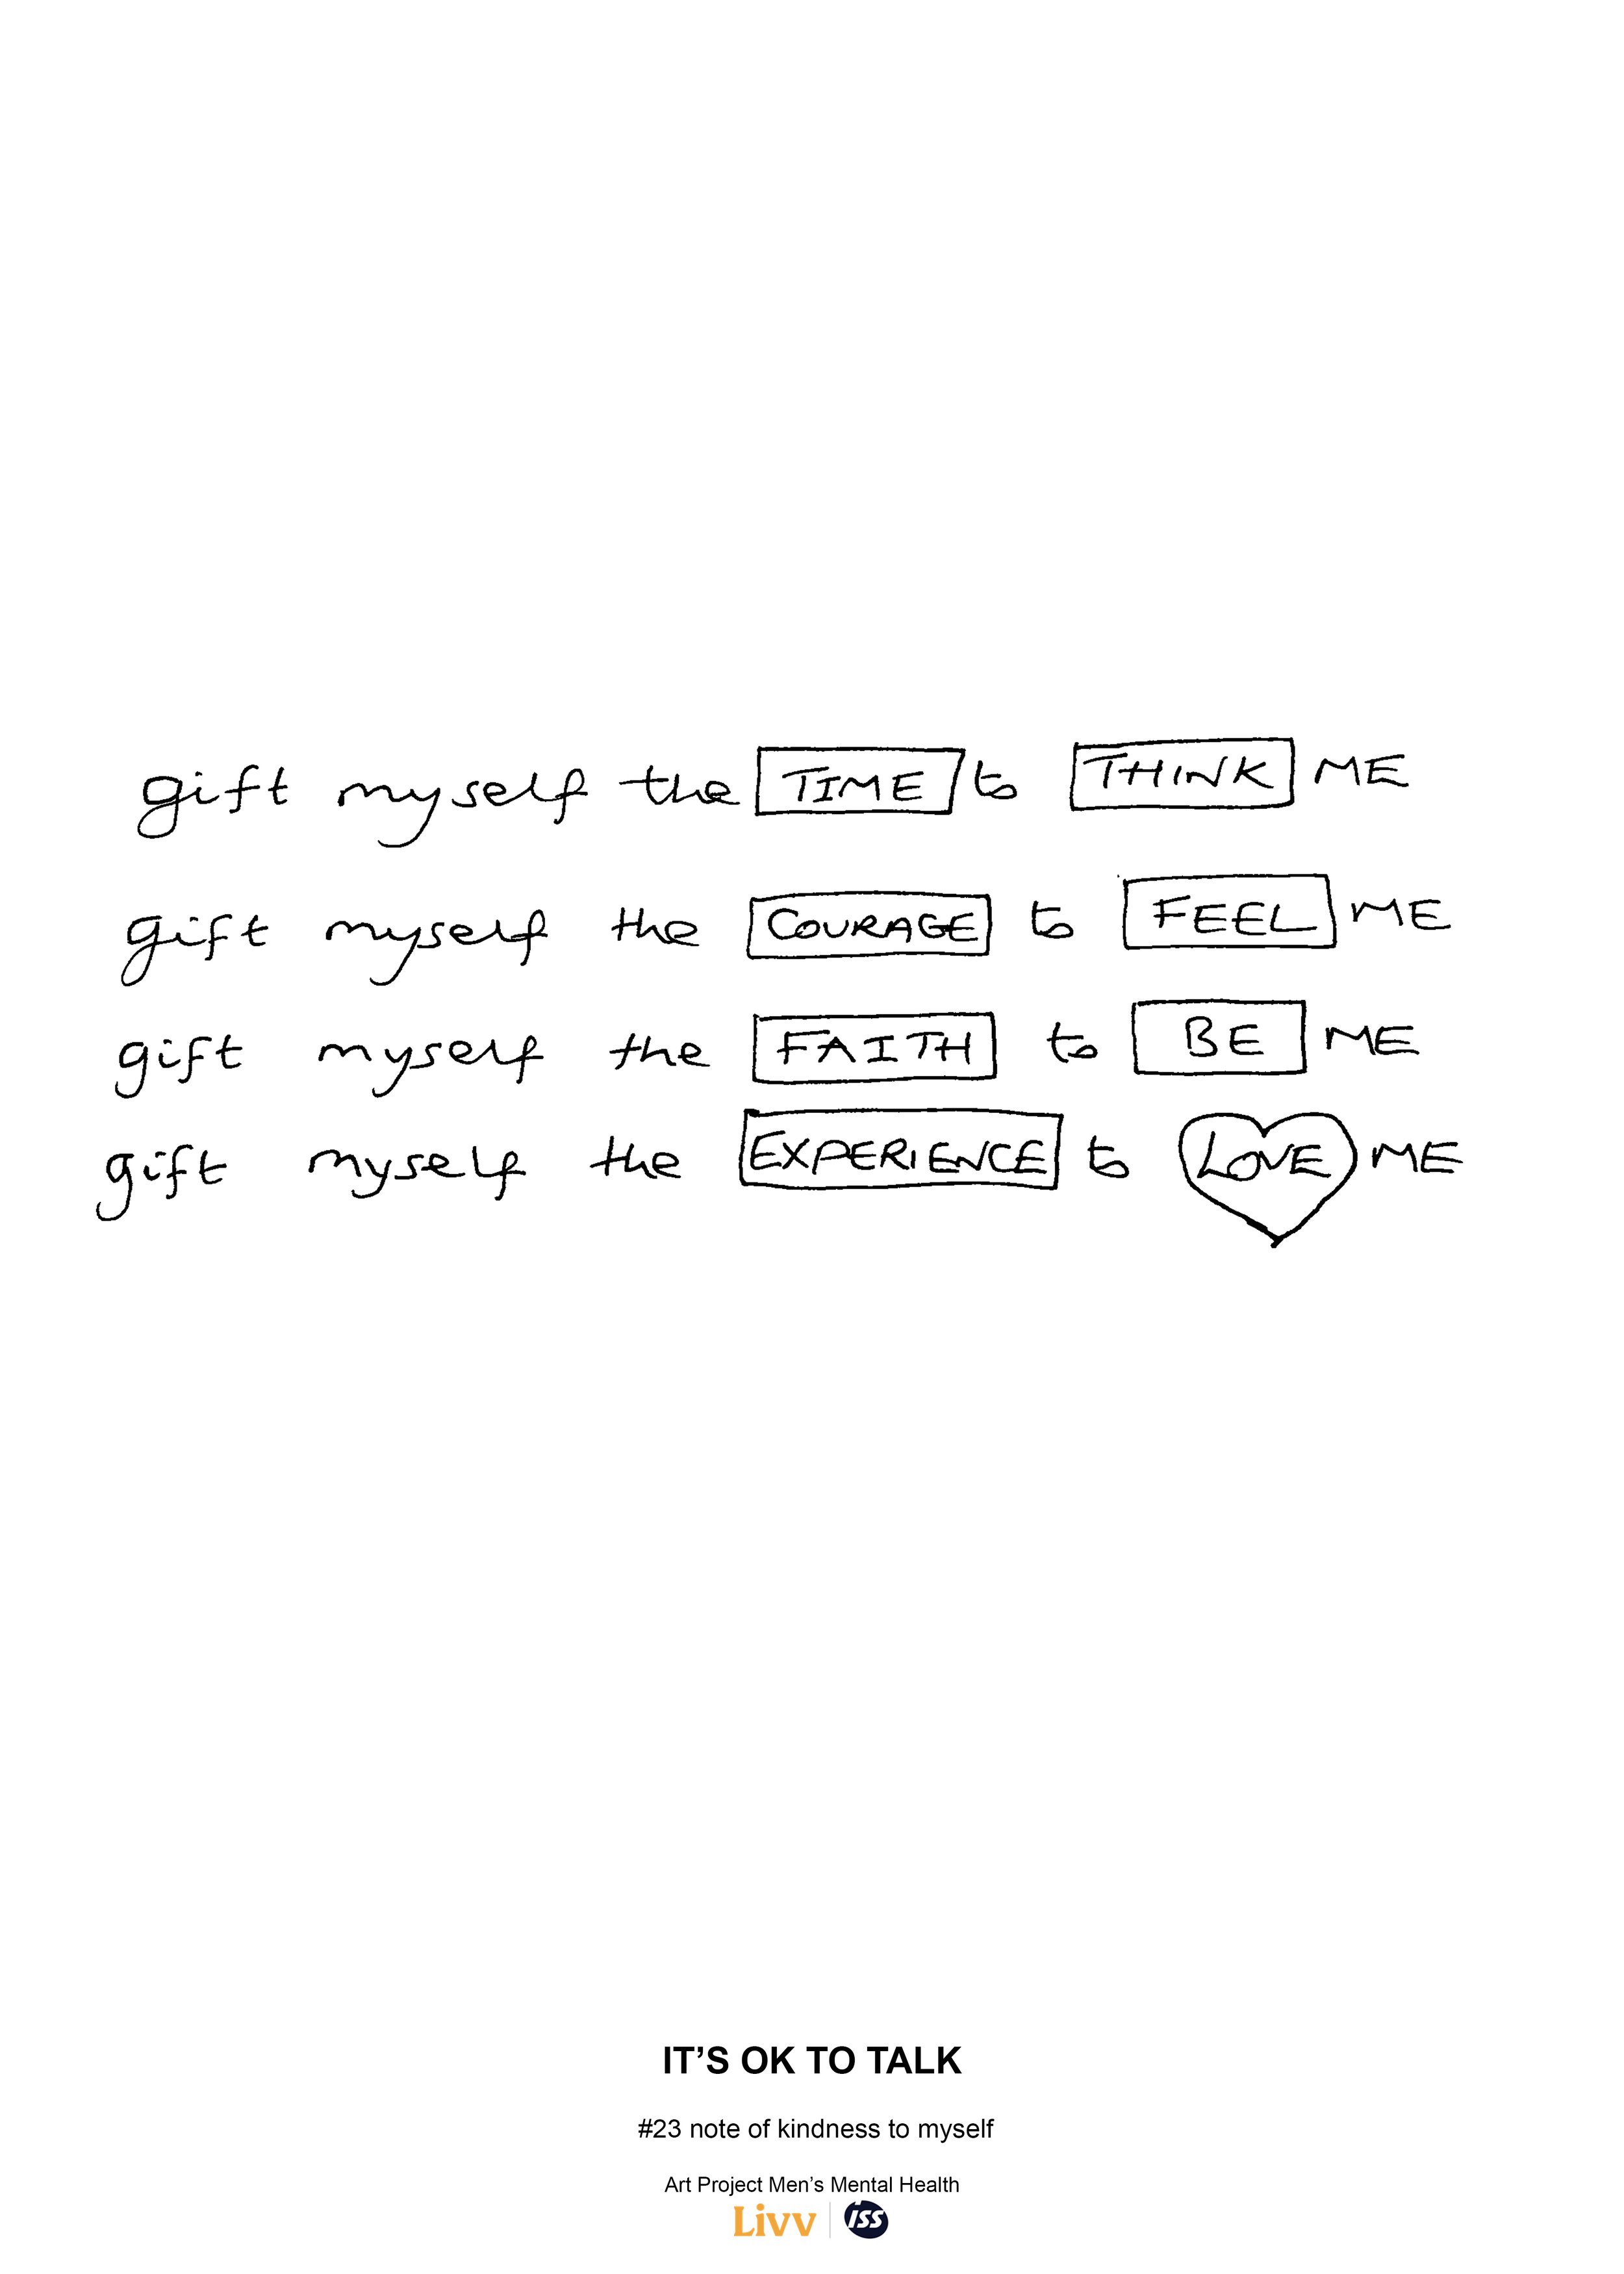 gift myself the TIME to THINK ME
gift myself the COURAGE to FEEL ME
gift myself the FAITH to BE ME
gift myself the EXPERIENCE to LOVE ME
IT'S OK TO TALK
#23 note of kindness to myself
Art Project Men's Mental Health
Livv ISS